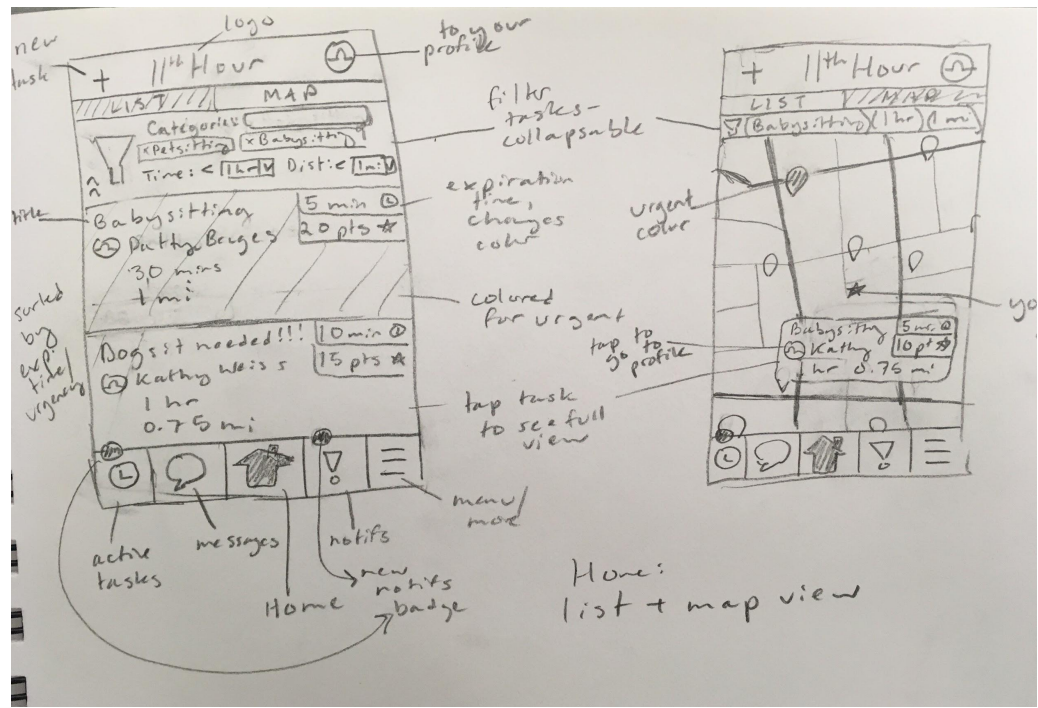 logo
new
task
to your
profile
+ 11th Hour
LIST
MAP
Categories:
xPetsitting xBabysitting
Time: < 1hr v Dist: < 1mi v
filter
tasks-
collapsable
title
Babysitting
5 min
20 pts
30 mins
1 mi
expiration
time,
changes
color
colored
for urgent
sorted
by
exp.
time/
urgency
Dogsit needed!!!
10 min
15 pts
Kathy Weiss
1 hr
0.75 mi
tap task
to see full
view
active
tasks
messages
Home
notifs
new
notifs
badge
menu/
more
+ 11th Hour
LIST
MAP
Babysitting 1hr 1 mi
urgent
color
yo
tap to
go to
profile
Babysitting
5 min
Kathy
10 pts
1 hr 0.75 mi
Home:
list + map view